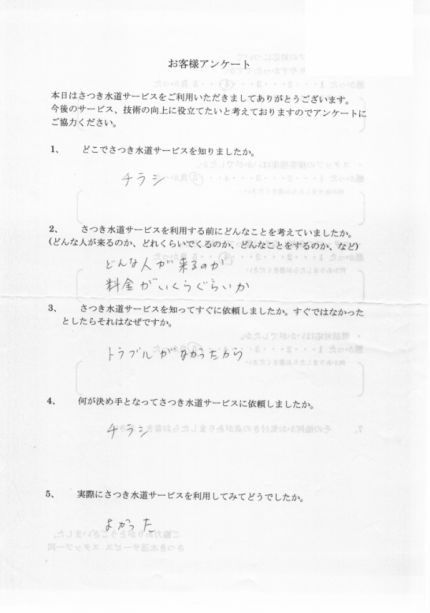 お客様アンケート
本日はさつき水道サービスをご利用いただきましてありがとうございます。
今後のサービス、技術の向上に役立てたいと考えておりますのでアンケートに
ご協力ください。
1、 どこでさつき水道サービスを知りましたか。
チラシ
2、 さつき水道サービスを利用する前にどんなことを考えていましたか。
(どんな人が来るのか、どれくらいでくるのか、どんなことをするのか、など)
どんな人が来るのか
料金がいくらぐらいか
3、 さつき水道サービスを知ってすぐに依頼しましたか。すぐではなかった
としたらそれはなぜですか。
トラブルがなかったから
4、 何が決め手となってさつき水道サービスに依頼しましたか。
チラシ
5、 実際にさつき水道サービスを利用してみてどうでしたか。
よかった